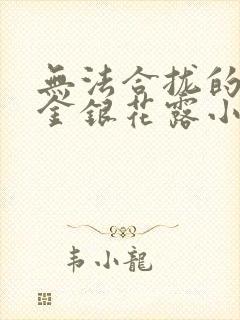 無法合拢的
金銀花露小
韦小龍